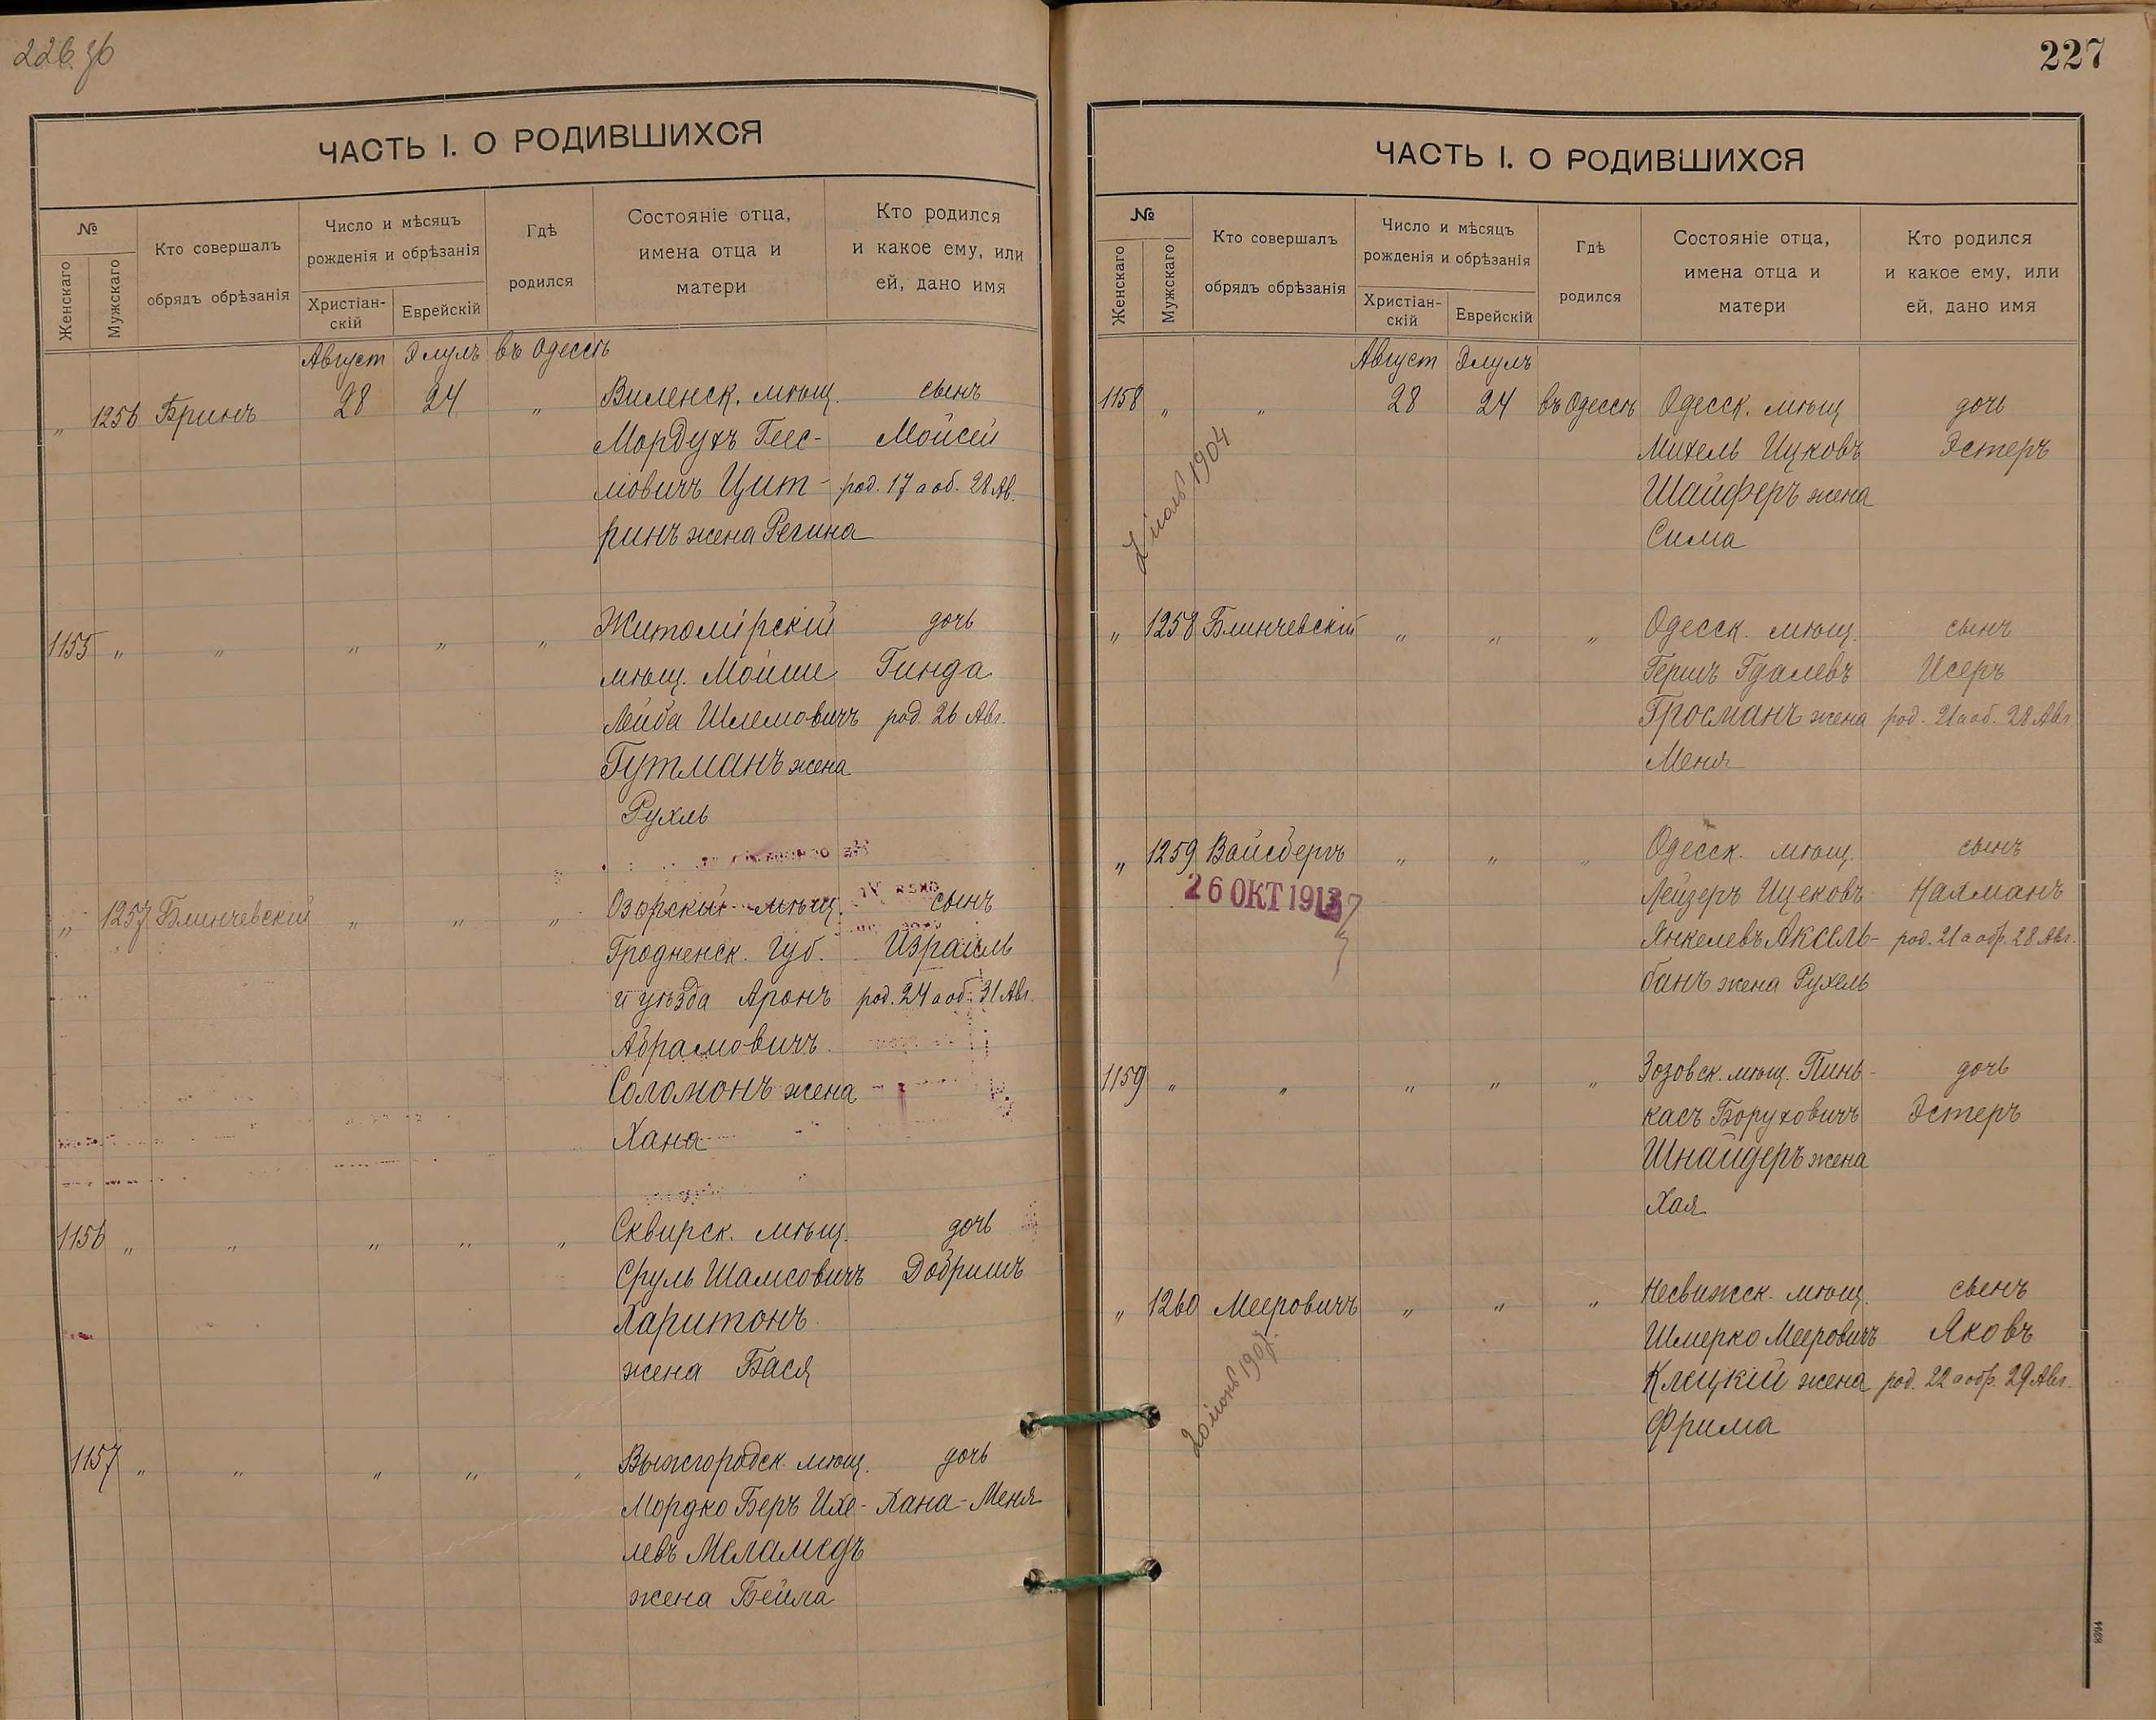 226 об
ЧАСТЬ I. О РОДИВШИХСЯ
№
Женскаго
Мужскаго
Кто совершалъ
обрядъ обрѣзанія
Число и мѣсяцъ
рожденія и обрѣзанія
Христіан-
скій
Еврейскій
Гдѣ
родился
Состояніе отца,
имена отца и
матери
Кто родился
и какое ему, или
ей, дано имя
Август Элулъ въ Одессѣ
„ 1256 Бринъ 28 24 „ Виленск. мѣщ. сынъ
Мордухъ Гес- Мойсей
мовичъ Цит- род. 17 а об. 28 Ав.
ринъ жена Регина
1155 „ „ „ „ „ Житомірскій дочь
мѣщ. Мойше Гинда
Лейба Шлемовичъ род 26 Авг.
Гутманъ жена
Рухль
„ 1257 Блинчевскій „ „ „ Озорскій мѣщ. сынъ
Гродненск. Губ. Израиль
и уѣзда Аронъ род. 24 а об. 31 Авг.
Абрамовичъ
Соломонъ жена
Хана
1156 „ „ „ „ „ Сквирск. мѣщ. дочь
Сруль Шамсовичъ Добришъ
Харитонъ
жена Бася
1157 „ „ „ „ „ Выжгородск. мѣщ. дочь
Мордко Беръ Ихе- Хана-Меня
левъ Меламедъ
жена Бейла
227
ЧАСТЬ I. О РОДИВШИХСЯ
№
Женскаго
Мужскаго
Кто совершалъ
обрядъ обрѣзанія
Число и мѣсяцъ
рожденія и обрѣзанія
Христіан-
скій
Еврейскій
Гдѣ
родился
Состояніе отца,
имена отца и
матери
Кто родился
и какое ему, или
ей, дано имя
Август Элулъ
1158 „ „ 28 24 въ Одессѣ Одесск. мѣщ дочь
Михель Ицковъ Эстеръ
Шайферъ жена
Сима
1904
„ 1258 Блинчевскій „ „ „ Одесск. мѣщ. сынъ
Гершъ Гдалевъ Исеръ
Гросманъ жена род. 21 а об. 28 Авг
Меня
„ 1259 Вайсбергъ „ „ „ Одесск. мѣщ. сынъ
26 ОКТ
Лейзеръ Ицековъ Нахманъ
Янкелевъ Аксель- род. 21 а обр. 28 Авг.
банъ жена Рухель
1159 „ „ „ „ „ Зозовск. мѣщ. Пинь- дочь
касъ Боруховичъ Эстеръ
Шнайдеръ жена
Хая
„ 1260 Мееровичъ „ „ „ Несвижск. мѣщ. сынъ
Шмерко Мееровичъ Яковъ
Клецкій жена род. 22 а обр. 29 Авг.
Фрима
20 июня 1907
8394